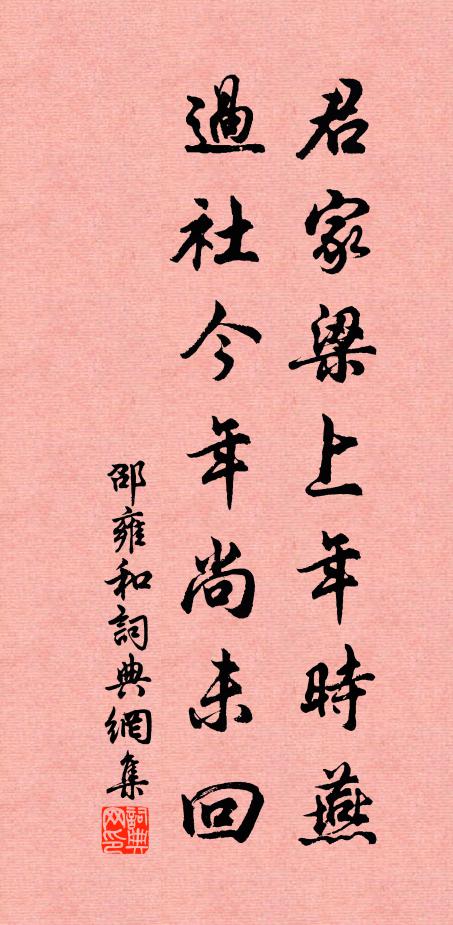 君家梁上年時燕
過社今年尚未回
邵雍和詞典網集
詞典网印